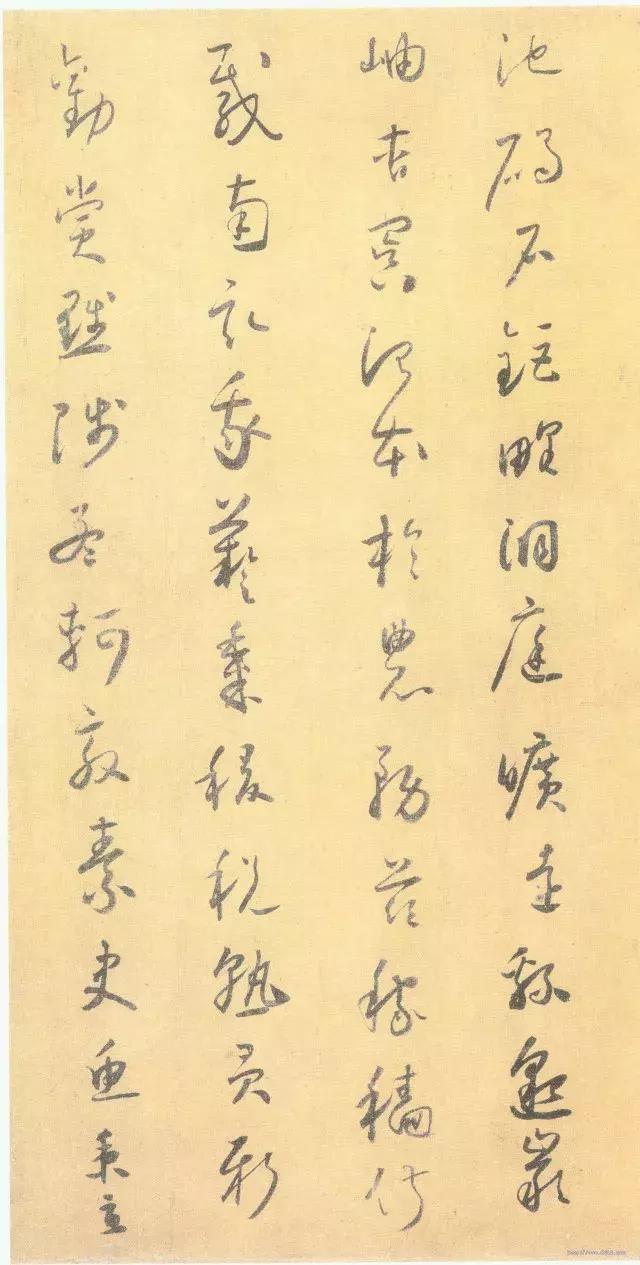 池碣石鉅野洞庭曠遠緜邈巖
岫杳冥治本於農務茲稼穡俶
載南畝我藝黍稷稅熟貢新
勸賞黜陟孟軻敦素史魚秉直